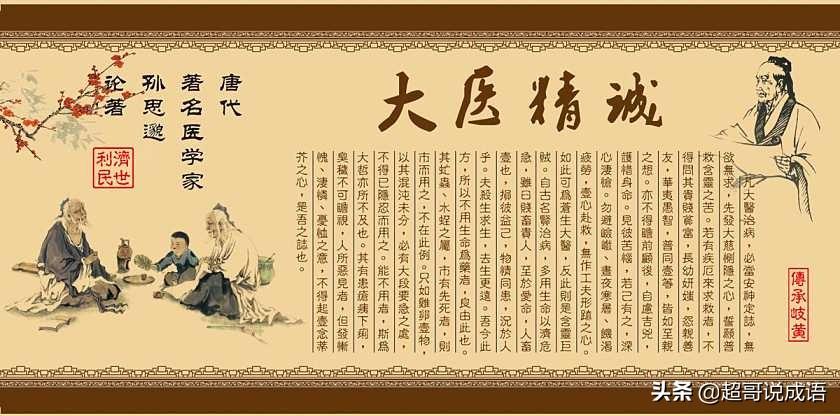 大医精诚
唐代
著名医学家
孙思邈
论著
濟世
利民
凡大醫治病，必當安神定誌，無
欲無求，先發大慈惻隱之心，誓願普
救含靈之苦。若有疾厄來求救者，不
得問其貴賤貧富，長幼妍媸，怨親善
友，華夷愚智，普同壹等，皆如至親
之想。亦不得瞻前顧後，自慮吉兇，
護惜身命。見彼苦惱，若己有之，深
心淒愴。勿避嶮巇、晝夜寒暑、饑渴
疲勞，壹心赴救，無作工夫形跡之心。
如此可為蒼生大醫，反此則是含靈巨
賊。自古名賢治病，多用生命以濟危
急，雖曰賤畜貴人，至於愛命，人畜
壹也，損彼益己，物情同患，況於人
乎。夫殺生求生，去生更遠。吾今此
方，所以不用生命為藥者，良由此也。
其虻蟲、水蛭之屬，市有先死者，則
市而用之，不在此例。只如雞卵壹物，
以其混沌未分，必有大段要急之處，
不得已隱忍而用之。能不用者，斯為
大哲亦所不及也。其有患瘡痍下痢，
臭穢不可瞻視，人所惡見者，但發慚
愧、淒憐、憂恤之意，不得起壹念蒂
芥之心，是吾之誌也。
傳承岐黃
头条 @超哥说成语